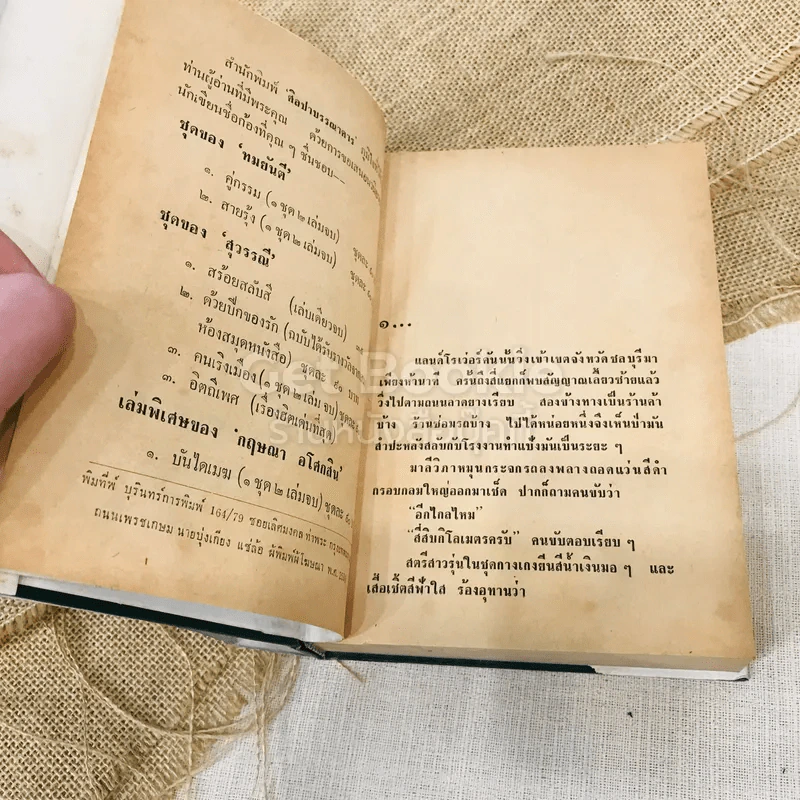 สำนักพิมพ์ 'ศิลปาบรรณาคาร' ภูมิใจ
ท่านผู้อ่านที่มีพระคุณ ด้วยการขอเสนอ
นักเขียนชื่อก้องที่คุณ ๆ ชื่นชอบ—
ชุดของ 'ทมยันตี'
๑. คู่กรรม (๑ ชุด ๒ เล่มจบ) ชุดละ
๒. สายรุ้ง (๑ ชุด ๒ เล่มจบ) ชุดละ
ชุดของ 'สุวรรณี'
๑. สร้อยสลับสี (เล่มเดียวจบ)
๒. ด้วยปีกของรัก (ฉบับได้รับรางวัลจาก
ห้องสมุดหนังสือ) ชุดละ ๙๐ บาท
๓. คนเริงเมือง (๑ ชุด ๒ เล่มจบ) ชุดละ
๓. อิตถีเพศ (เรื่องฮิตเด่นที่สุด)
เล่มพิเศษของ 'กฤษณา อโศกสิน'
๑. บันไดเมฆ (๑ ชุด ๒ เล่มจบ) ชุดละ
พิมพ์ที่ บุรินทร์การพิมพ์ 164/79 ซอยเลิศมงคล ท่าพระ
ถนนเพชรเกษม นายบุ่งเกียง แซ่ล้อ ผู้พิมพ์ผู้โฆษณา พ.ศ.
๑...
แลนด์โรเว่อร์คันนั้นวิ่งเข้าเขตจังหวัดชลบุรีมา
เพียงห้านาที ครั้นถึงสี่แยกก็พบสัญญาณเลี้ยวซ้ายแล้ว
วิ่งไปตามถนนลาดยางเรียบ สองข้างทางเป็นร้านค้า
บ้าง ร้านซ่อมรถบ้าง ไปได้หน่อยหนึ่งจึงเห็นป่ามัน
สำปะหลังสลับกับโรงงานทำแป้งมันเป็นระยะ ๆ
มาลีวิภาหมุนกระจกรถลงพลางถอดแว่นสีดำ
กรอบกลมใหญ่ออกมาเช็ด ปากก็ถามคนขับว่า
"อีกไกลไหม"
"สี่สิบกิโลเมตรครับ" คนขับตอบเรียบ ๆ
สตรีสาวรุ่นในชุดกางเกงยีนสีน้ำเงินมอ ๆ และ
เสื้อเชิ้ตสีฟ้าใส ร้องอุทานว่า
Get Bookie